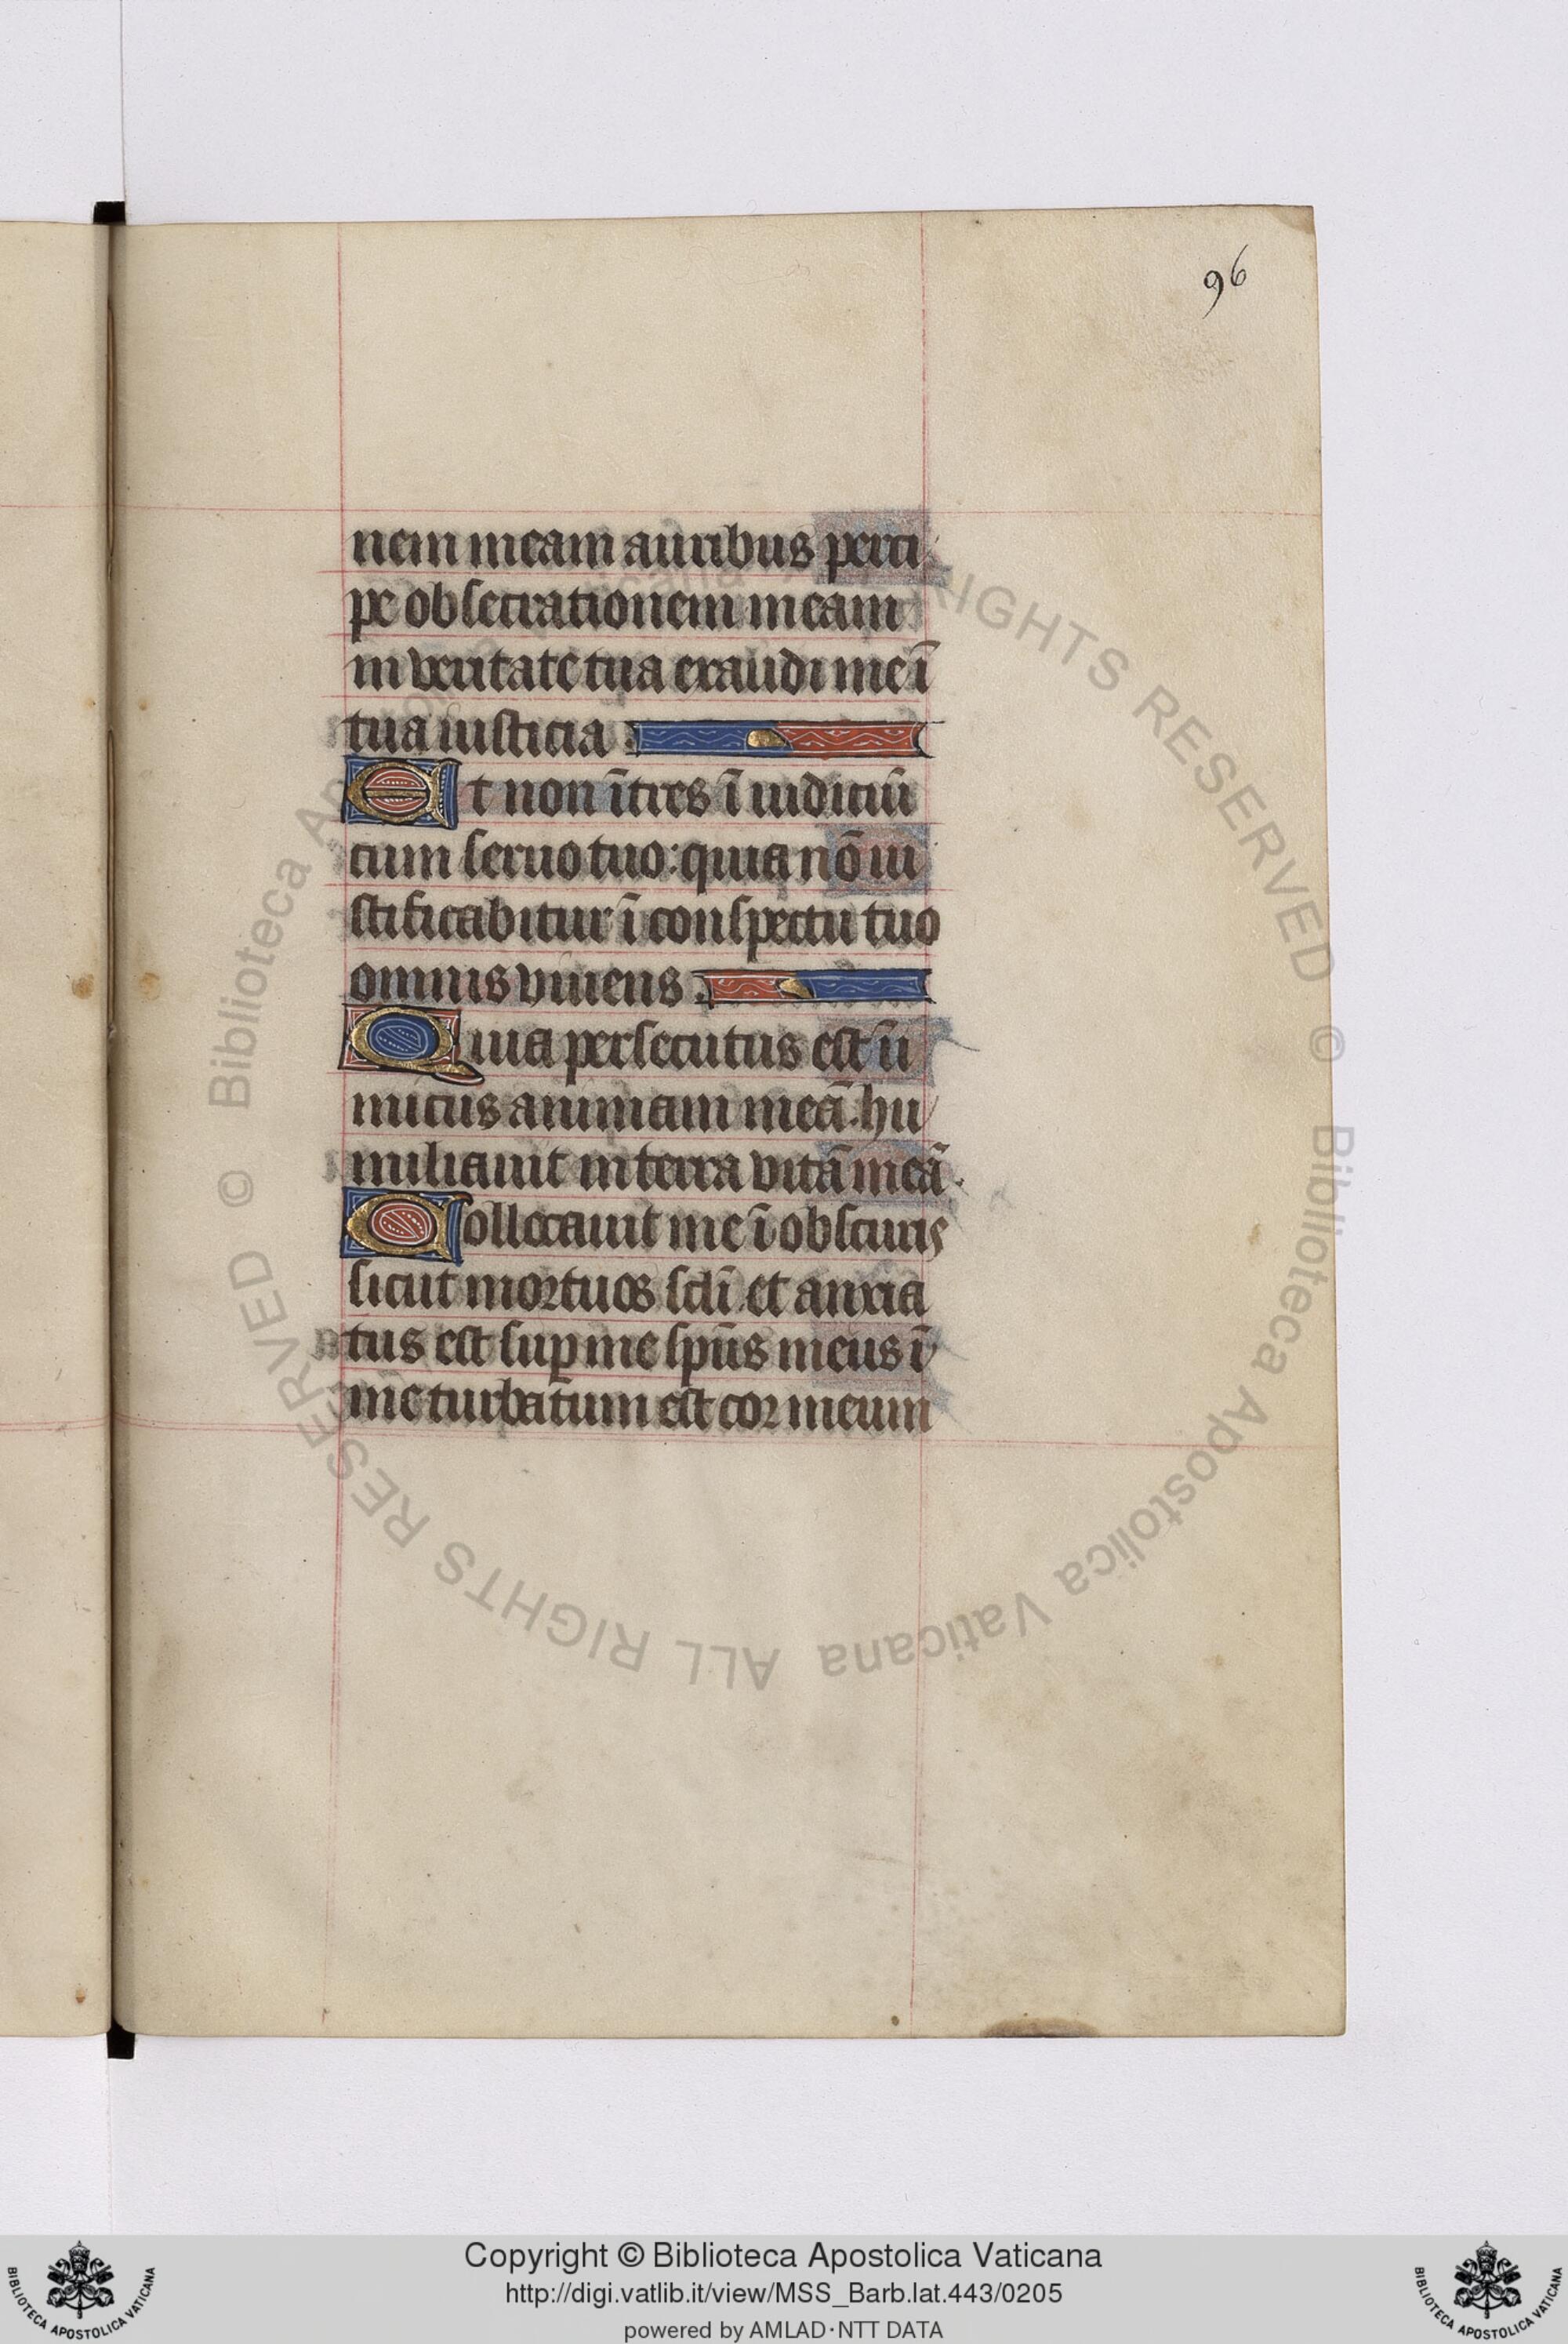 96
nem meam auribus perci
pe obsecrationem meam
in veritate tua exaudi me ī
tua iusticia .
Et non ītres ī iudiciū
cum seruo tuo: quia nō iu
stificabitur ī conspectu tuo
omnis viuens .
Quia persecutus est ini
micus animam meā. hu
miliauit in terra vitā meā.
Collocauit me ī obscuris
sicut mortuos scłi et anxia
tus est suꝑ me spūs meus ī
me turbatum est cor meum
© Biblioteca Apostolica Vaticana ALL RIGHTS RESERVED
© Biblioteca Apostolica Vaticana ALL RIGHTS RESERVED
BIBLIOTECA APOSTOLICA VATICANA
Copyright © Biblioteca Apostolica Vaticana
http://digi.vatlib.it/view/MSS_Barb.lat.443/0205
powered by AMLAD·NTT DATA
BIBLIOTECA APOSTOLICA VATICANA